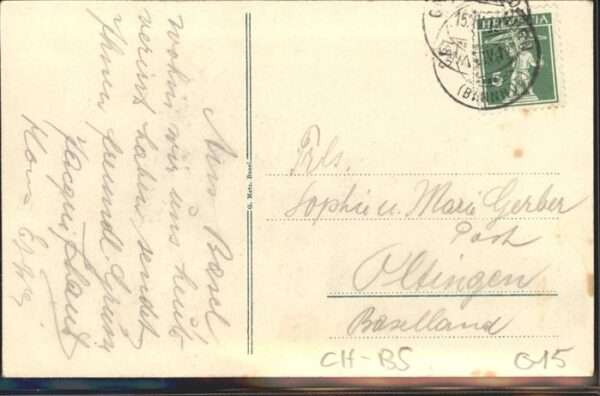 Aus Basel
wohin wir uns heut
verirrt haben sendet
Ihnen freundl. Grüsse
G. Metz, Basel.
HELVETIA
5
Frls.
Sophie u. Marie Gerber
Post
Oltingen
Baselland
CH-BS
G15